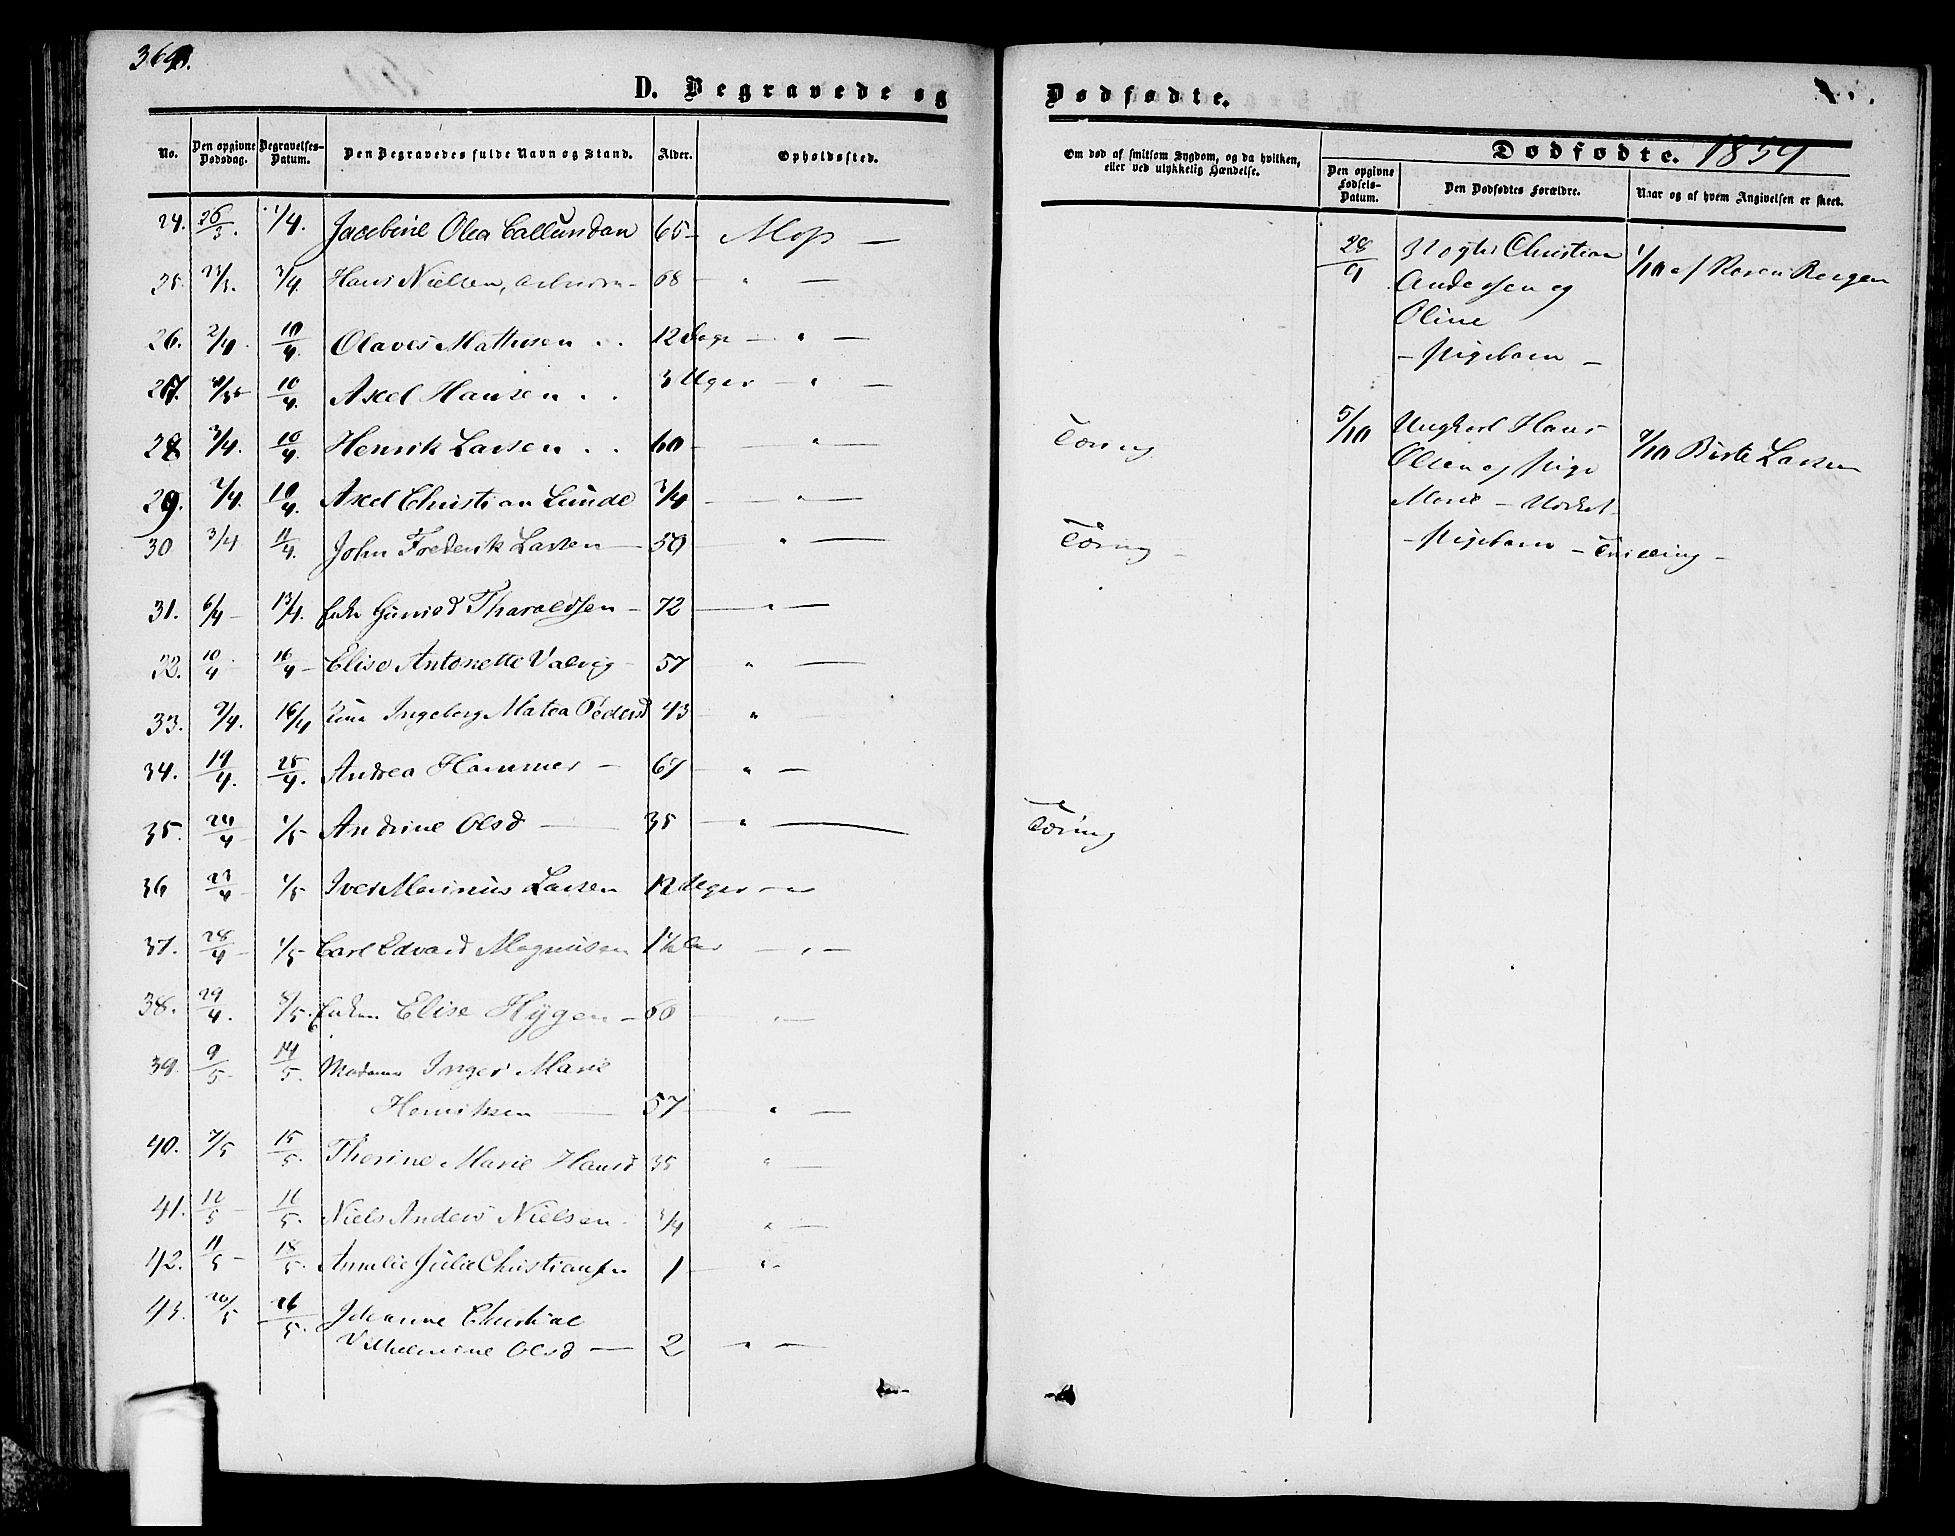 D. Begravede og Dødfødte.
No. Den opgivne Dødsdag. Begravelses-Datum. Den Begravedes fulde Navn og Stand. Alder. Opholdssted.
Om død af smitsom Sygdom, og da hvilken, eller ved ulykkelig Hændelse.
Dødfødte. 1859
Den opgivne Fødsels-Datum. Den Dødfødtes Forældre. Naar og af hvem Angivelsen er skeet.
24. 26/3 1/4. Jacobine Olea Callundan 65 - Moss -
25. 23/3. 3/4 Hans Nielsen, 68 - " -
26. 2/4. 10/4. Olaves Mathisen . . 12 Dage - " -
27. 10/4. Axel Hansen . . 3 Uger - " -
28. 3/4. 10/4. Henrik Larsen . . 60 - " - Tæring
29. 2/4. 10/4. Axel Christian Lunde 3/4 - " -
30 3/4 11/4. John Frederik Larsen - 50 - " - Tæring -
31. 6/4 - 13/4. Enke Gunild Tharaldsen - 72 - " -
32. 10/4 16/4 - Elise Antonette Valvig - 57 " -
33. 9/4. 16/4 Ingeborg Matea Pedersd 43 - " -
34. 19/4. 25/4. Andrea Hammer - 67 - " -
35. 24/4 - 1/5 Andrine Olsd - 35 - " - Tæring
36 23/4 - 1/5 Iver Marinus Larsen 12 Uger - "
37. 28/4 - 1/5 Carl Edvard Magnusen 1 1/2 Aar - " -
38. 29/4. 8/5. Enken Elise Hÿgen - 60 - " -
39. 9/5. 14/5. Madame Inger Marie
Henriksen - 57 - " -
40. 7/5 15/5. Therine Marie Hansd 35 " -
41. 12/5 - 16/5. Niels Anders Nielsen. 3/4 " -
42. 11/5 - 18/5. Amalie Julie Christiansen 1 - " -
43. 20/5 26/5. Johanne Christine
Vilhelmine Olsd - 2 - " -
28/9 Christian 1/10 af
Andersen og
Oline
- Pigebarn -
5/10 Ungkarl Hans 9/10 Birte Larsen
Olsen og Pige
Marie -
- Pigebarn - Tvilling -